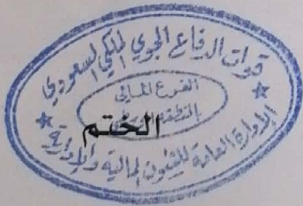 قوات الدفاع الجوي الملكي السعودي
الفرع المالي
بالمنطقة
الختم
الإدارة العامة للشئون المالية والإدارية